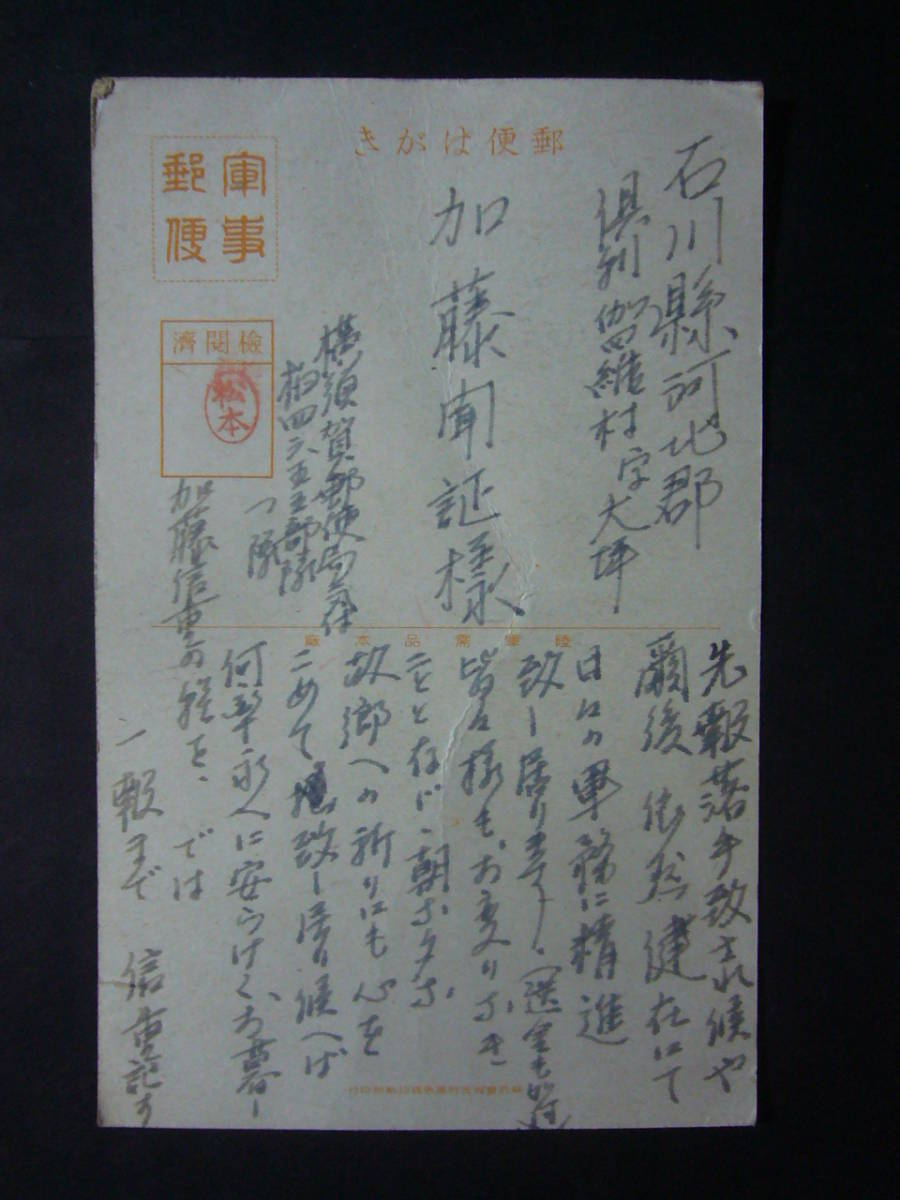 郵便はがき
軍事郵便
検閲済
松本
石川縣河北郡
倶利伽羅村字大坪
加藤聞証様
横須賀郵便局気付
四六五五部隊
つ隊
加藤信重
陸軍需品本廠
先報落手致され候や
爾後依然健在にて
日々の軍務に精進
致し居ります。(送金も
皆々様もお変りなき
ことと存じ、朝な夕な
故郷への祈りにも心を
こめて致し居り候へば
何卒永へに安らけくお暮し
の程を、では
一報まで
信重記す